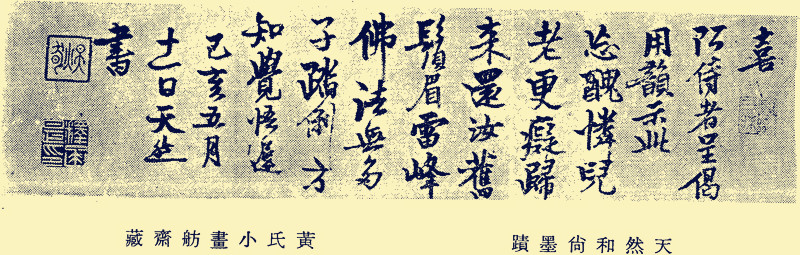 喜
阿侍者呈偈
用韻示此
忘醜憐兒
老更癡歸
来還汝舊
鬚眉雷峰
佛法無多
子踏倒方
知覺悟遲
己亥五月
十一日天然
書
天然和尚墨蹟
黃氏小畫舫齋藏